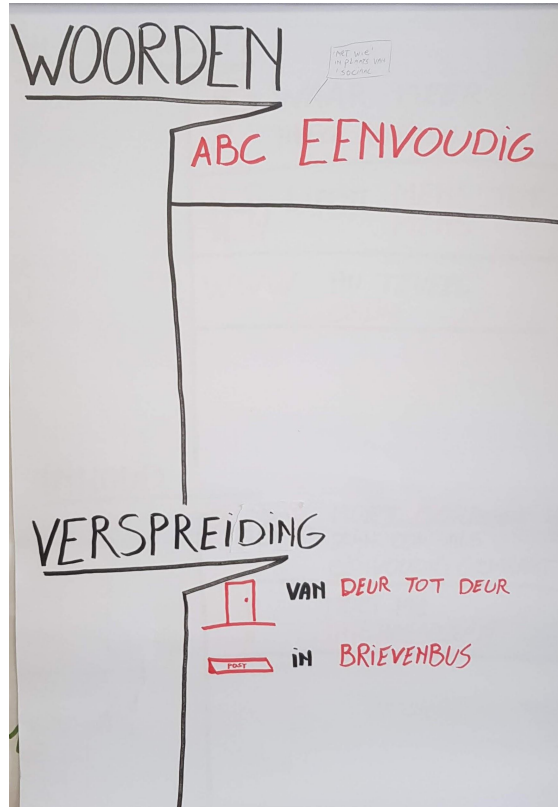 WOORDEN
"MET WIE"
IN PLAATS VAN
"SOCIAAL"
ABC EENVOUDiG
VERSPREiDiNG
VAN DEUR TOT DEUR
POST
iN BRiEVENBUS